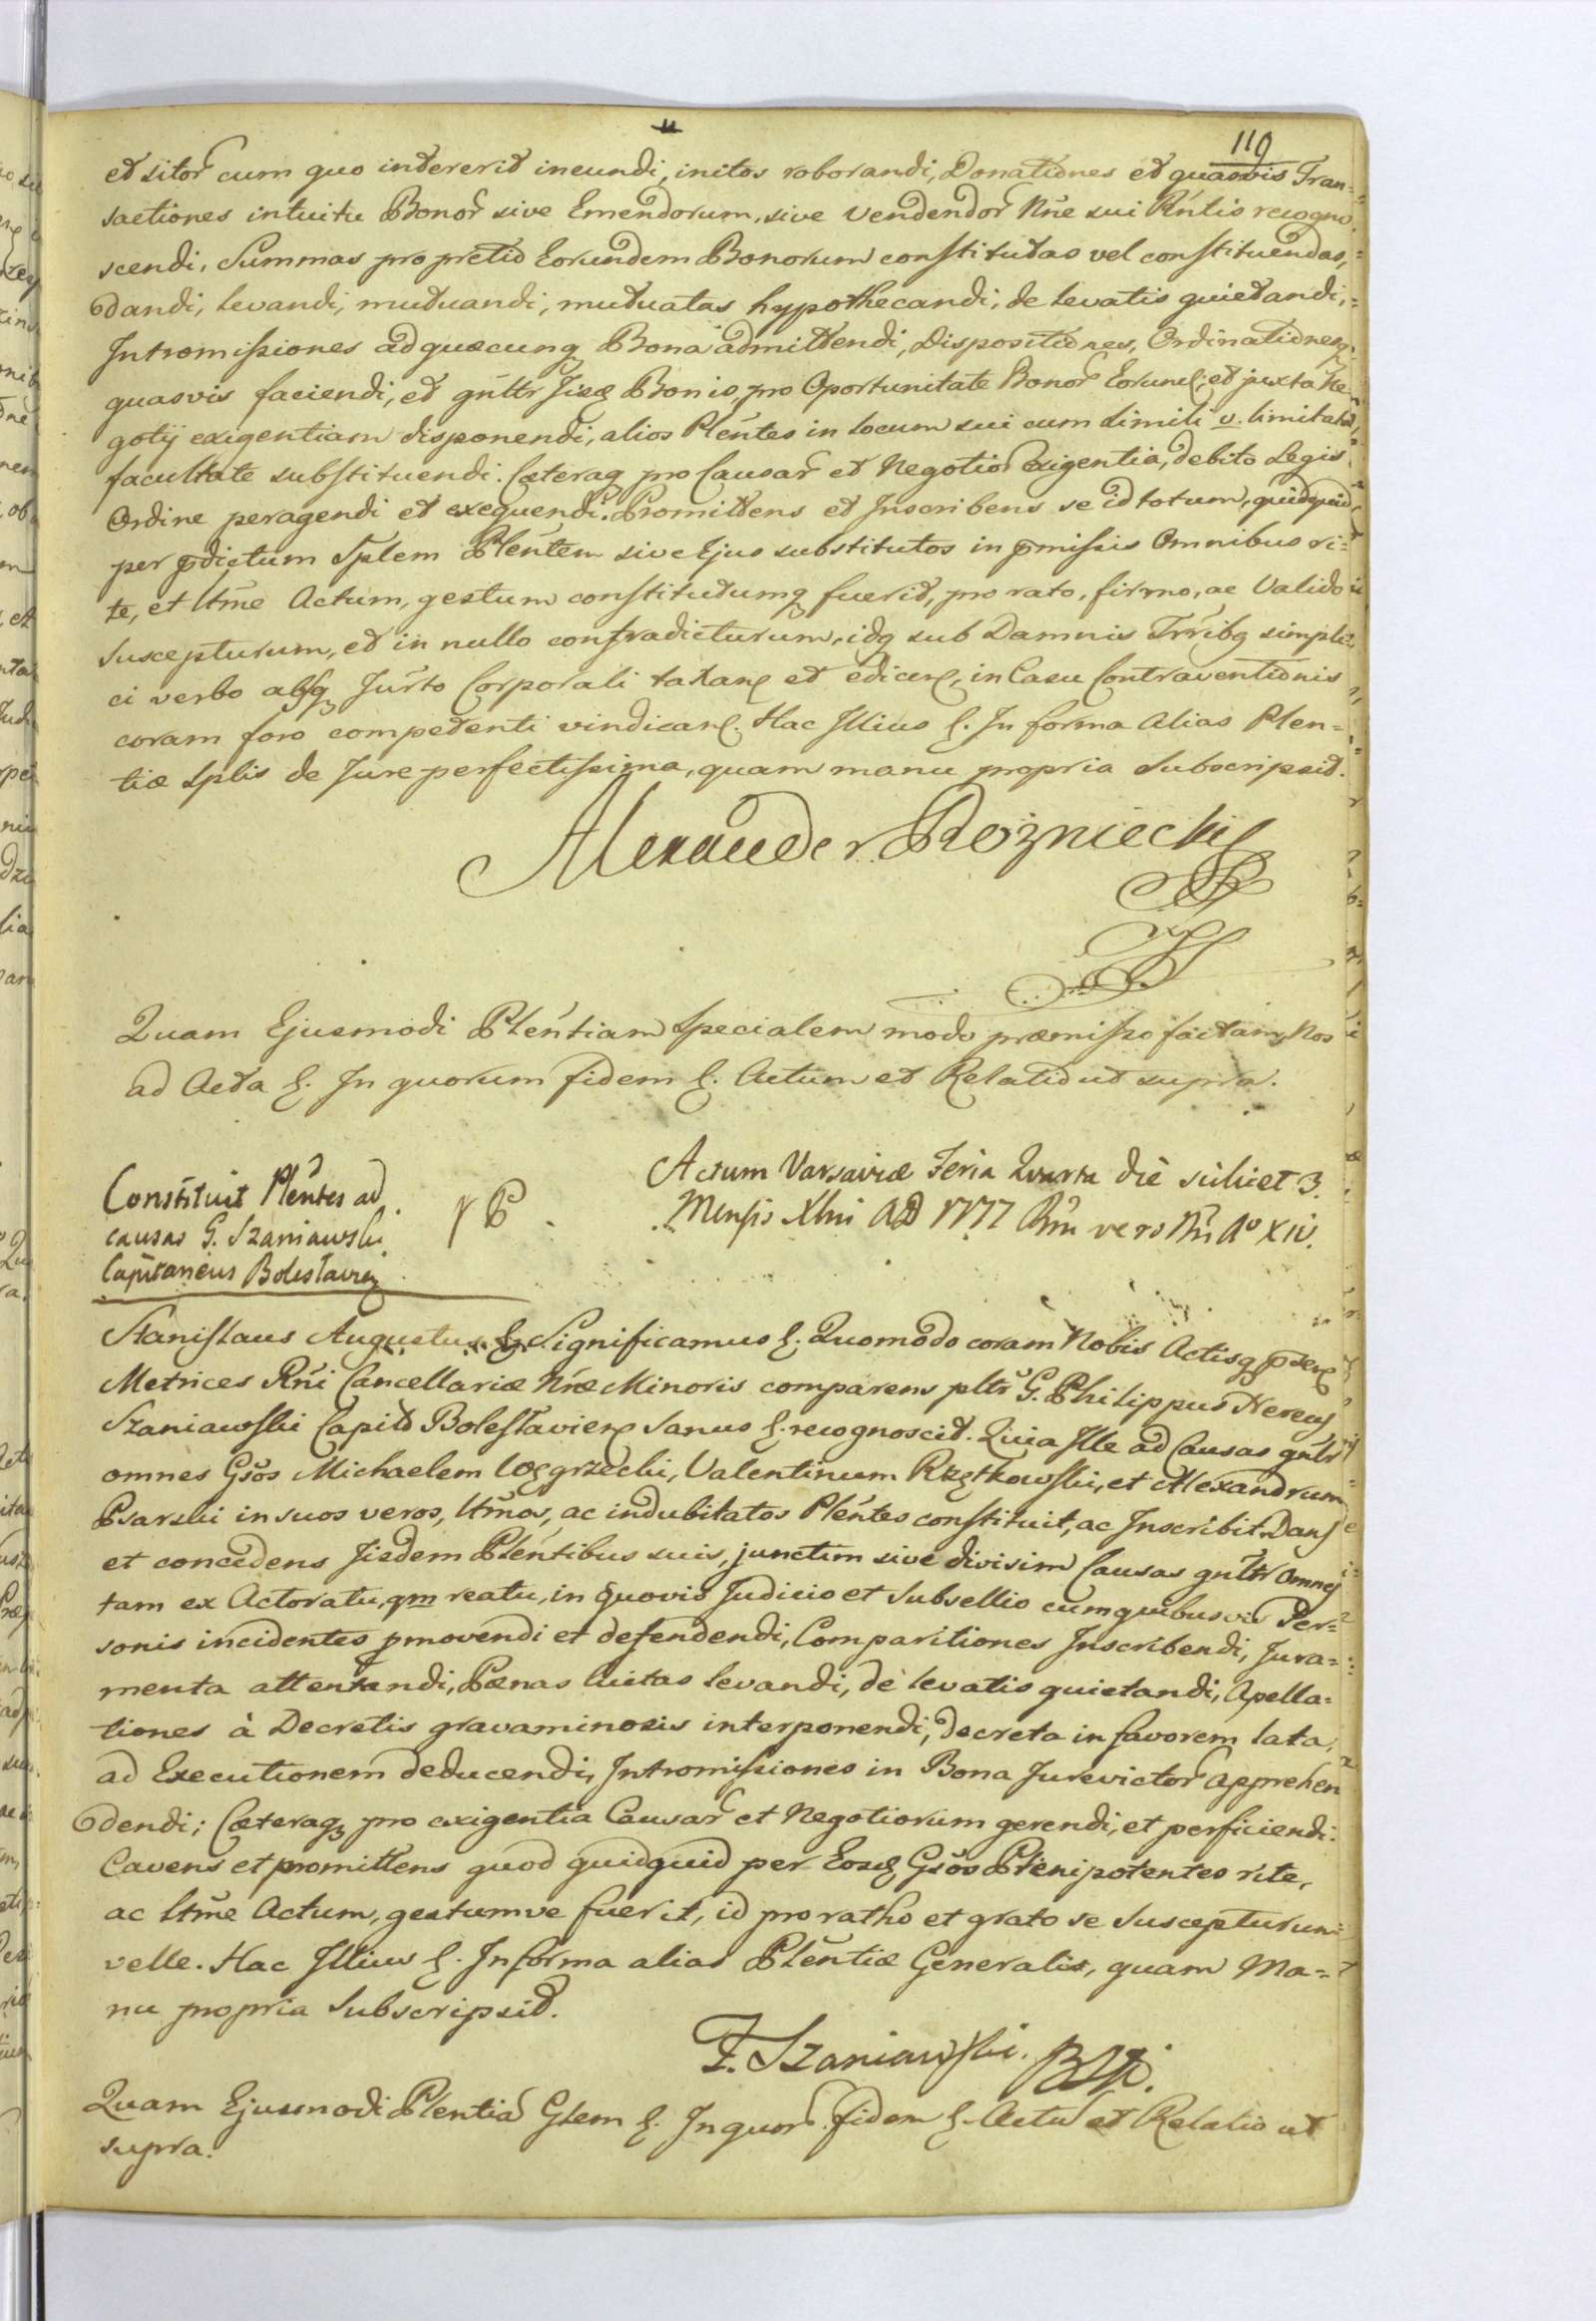 119
et sitor cum quo intererit ineundi, initos roborandi, Donationes et quasvis Tran=
sactiones intuitu Bonor sive Emendorum, sive vendendor Nne sui Rntis recogno
scendi, Summas pro pretio Eorundem Bonorum constitutas vel constituendas,
dandi, levandi, mutuandi, mutuatas hypothecandi, de levatis quietandi,
Intromissiones ad quæcunq Bona admittendi, Dispositiones, Ordinationesq
quasvis faciendi, et gnltr Iisd Bonis, pro Oportunitate Bonor Eorund, et juxta Ne
gotij exigentiam disponendi, alios Plentes in locum sui cum simili v. limitata
facultate substituendi. Cæteraq pro Causar et Negotior exigentia, debito Legis
Ordine peragendi et exequendi. Promittens et Inscribens se id totum, quidquid
per pdictum Splem Plentem sive Ejus substitutos in pmissis Omnibus ri=
te, et ltme Actum, gestum constitutumq fuerit, pro rato, firmo, ac Valido
suscepturum, et in nullo contradicturum, idq sub Damnis Trribq simpli=
ci verbo absq Jurto Corporali taxand et edicend, in Casu Contraventionis
coram foro competenti vindicand. Hac Illius &. In forma Alias Plen=
tiæ Splis de Jure perfectissima, quam manu propria Subscripsit.
Alexander Rożniecki
Quam Ejusmodi Plentiam Specialem modo præmisso factam, Nos
ad Acta &. In quorum fidem &. Actum et Relatio ut supra.
Constituit Plentes ad
causas G. Szaniawski
Capitaneus Boleslavien
Actum Varsaviæ Feria Quarta die scilicet 3.
Mensis Xbri AD 1777 Rni vero Nri Aº XIV.
Stanislaus Augustus &. Significamus &. Quomodo coram Nobis Actisq psentt
Metrices Rni Cancellariæ Nræ Minoris comparens pltr G. Philippus Nereus
Szaniawski Capit Boleslavien Sanus &. recognoscit. Quia Ille ad Causas gnltr
omnes Gsos Michaelem Węgrzecki, Valentinum Rzętkowski, et Alexandrum
Psarski in suos veros, ltmos, ac indubitatos Plentes constituit, ac Inscribit. Dans
et concedens Iisdem Plentibus suis, junctim sive divisim Causas gnltr Omnes
tam ex Actoratu, qm reatu, in quovis Judicio et Subsellio cum quibusvis Per=
sonis incidentes pmovendi et defendendi, Comparitiones Inscribendi, Jura=
menta attentandi, Pænas luitas levandi, de levatis quietandi, Apella=
tiones à Decretis gravaminosis interponendi, decreta in favorem lata,
ad Executionem deducendi, Intromissiones in Bona Jurevictor Apprehen
dendi; Cæteraq pro exigentia Causar et Negotiorum gerendi, et perficiendi.
Cavens et promittens quod quidquid per Eosd Gsos Plenipotentes rite,
ac ltme Actum, gestumve fuerit, id pro ratho et grato se Suscepturum
velle. Hac Illius &. In forma alias Plentiæ Generalis, quam Ma=
nu propria Subscripsit.
F. Szaniawski.
Quam Ejusmodi Plentia Glem &. In quor fidem &. Actu et Relatio ut
supra.